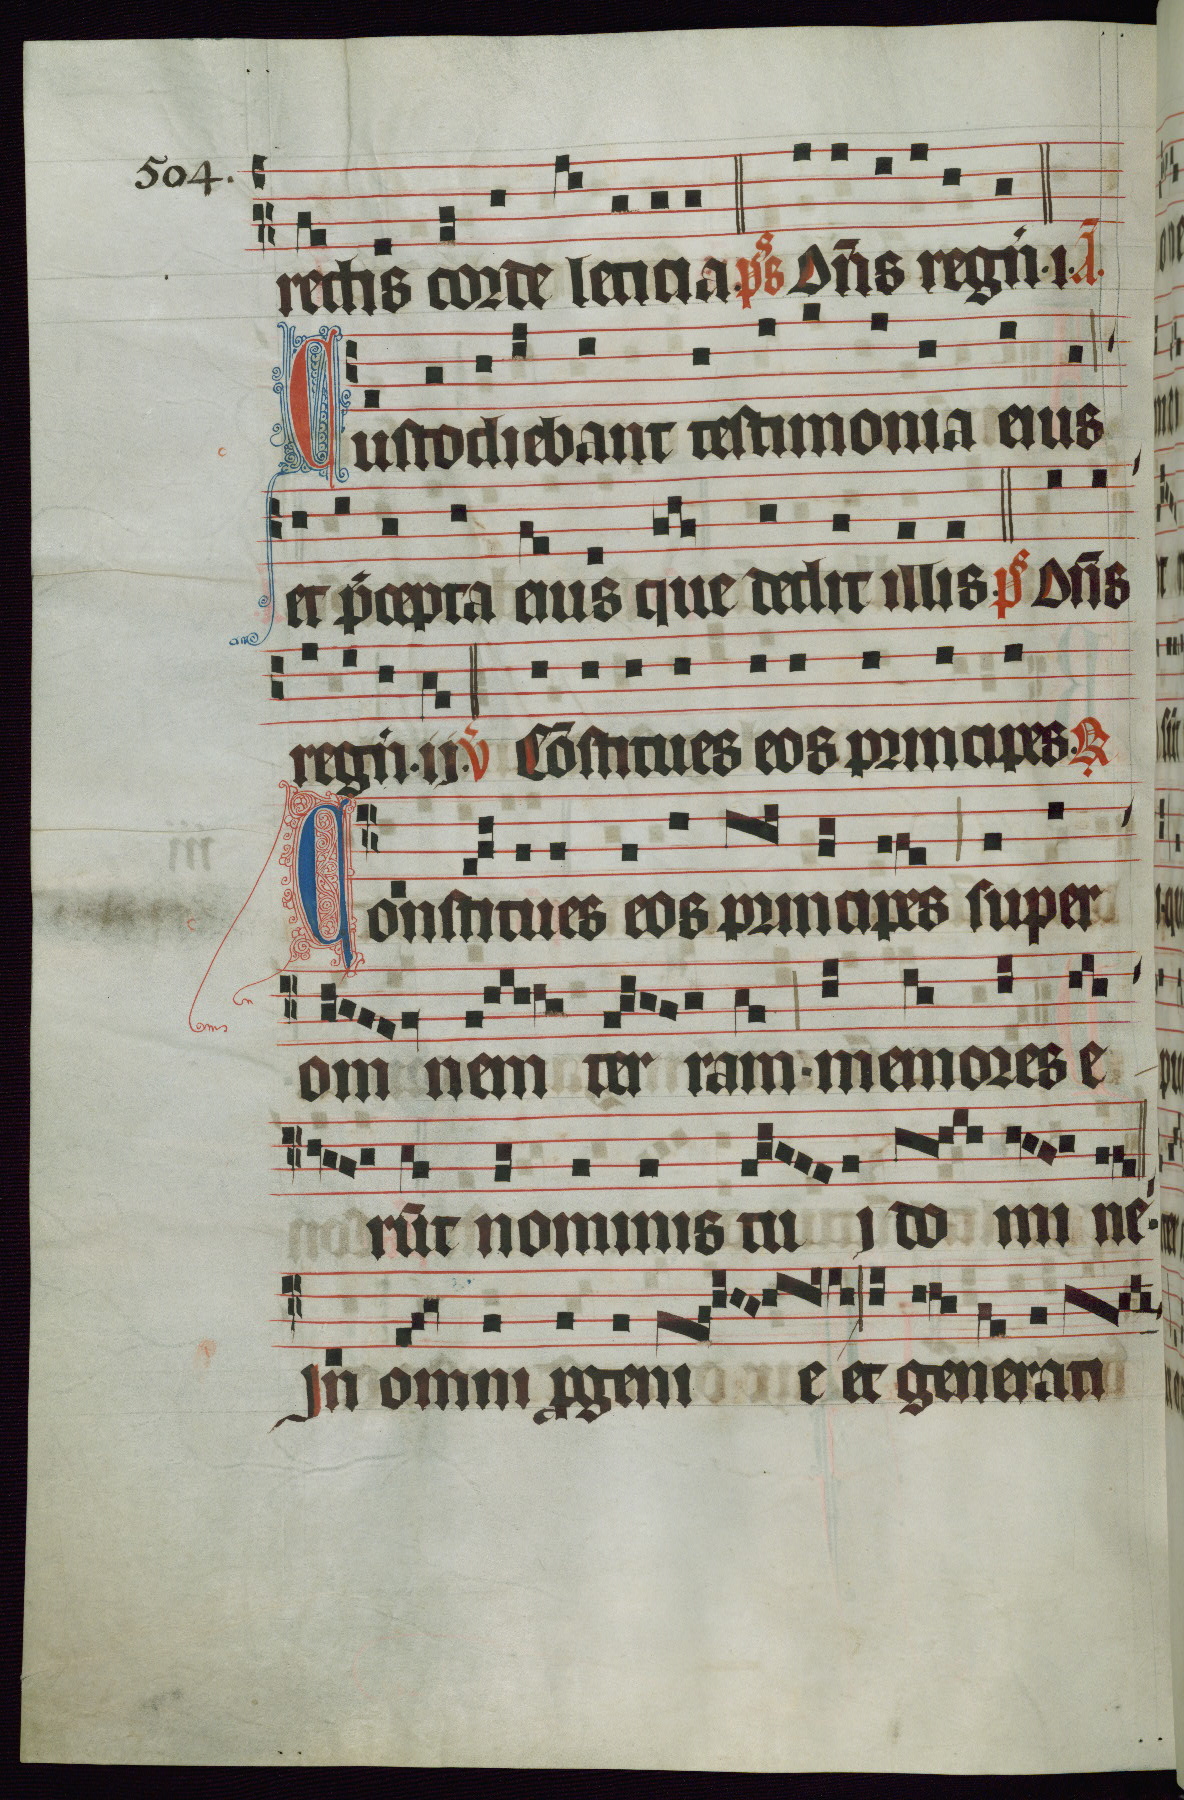 504.
rectis corde leticia. ps Dn̄s regn̄. i. A.
Custodiebant testimonia eius
et p̄cepta eius que dedit illis. ps Dn̄s
regn̄. ii. v̄ Cōstitues eos principes. R
Constitues eos principes super
om nem ter ram. memores e
rūt nominis tu i do mi ne.
In omni ꝓgeni e et generati